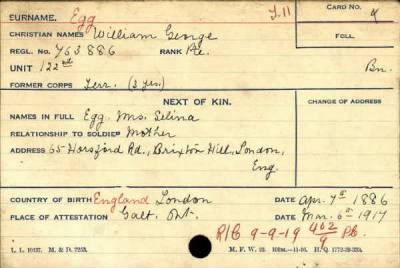 SURNAME. Egg J.11 CARD NO.
CHRISTIAN NAMES William George FOLL.
REGL. NO. 753886 RANK Pte.
UNIT 122nd Bn.
FORMER CORPS Terr. (3 yrs)
NEXT OF KIN. CHANGE OF ADDRESS
NAMES IN FULL Egg Mrs. Selina
RELATIONSHIP TO SOLDIER Mother
ADDRESS 65 Horsford Rd., Brixton Hill, London,
Eng.
COUNTRY OF BIRTH England London DATE Apr. 7th 1886
PLACE OF ATTESTATION Galt, Ont. DATE Mar. 6th 1917
R/C 9-9-19 462/9
L. L. 10137. M. & D. 7253. M. F. W. 22. H. Q. 1772-39-339.